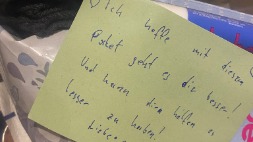 ♡ Ich hoffe mit diesem
Paket geht es dir besser!
Und kann dir helfen es
besser zu haben!
Liebe